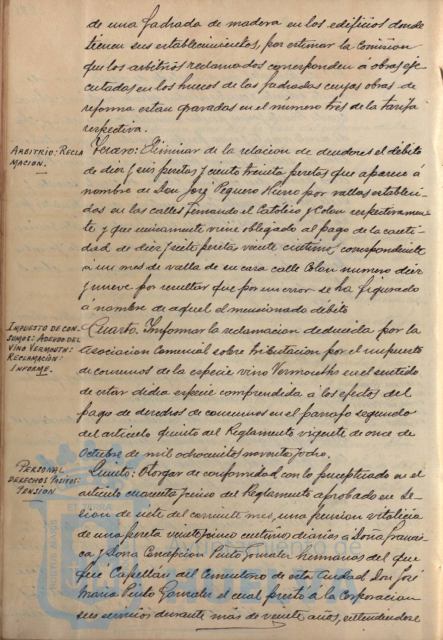 de una fachada de madera en los edificios donde
tienen sus establecimientos, por estimar la Comision
que los arbitrios reclamados corresponden á obras eje-
cutadas en los huecos de las fachadas cuyas obras de
reforma estan gravadas en el número tres de la tarifa
respectiva.
ARBITRIO: RECLA
MACION.
Tercero: Eliminar de la relacion de deudores el débito
de diez y seis pesetas y ciento treinta pesetas que aparece á
nombre de Don José Peguero Hierro por vallas estableci-
das en las calles Fernando el Católico y Colon respectivamen-
te y que unicamente viene obligado al pago de la canti-
dad de diez y siete pesetas veinte céntimos, correspondiente
á un mes de valla de su casa calle Colon numero diez
y nueve por resultar que por un error se ha figurado
á nombre de aquel el mencionado débito
IMPUESTO DE CON-
SUMOS: ADEUDO DEL
VINO VERMOUTH:
RECLAMACIÓN:
INFORME.
Cuarto. Informar la reclamacion deducida por la
Asociacion Comercial sobre tributacion por el impuesto
de consumos de la especie vino Vermouth en el sentido
de estar dicha especie comprendida á los efectos del
pago de derechos de consumos en el parrafo segundo
del articulo quinto del Reglamento vigente de once de
Octubre de mil ochocientos noventa y ocho.
PERSONAL
DERECHOS PASIVOS:
PENSION
Quinto: Otorgar de conformidad con lo preceptuado en el
articulo cuarenta y cinco del Reglamento aprobado en se-
sion de siete del corriente mes, una pension vitalicia
de una peseta veinte y cinco centimos diarios á Doña Francis-
ca y Doña Concepcion Pinto Gonzalez hermanas del que
fué Capellán del Cementerio de esta Ciudad Don José
Maria Pinto Gonzalez el cual prestó á la Corporacion
sus servicios durante más de veinte años,